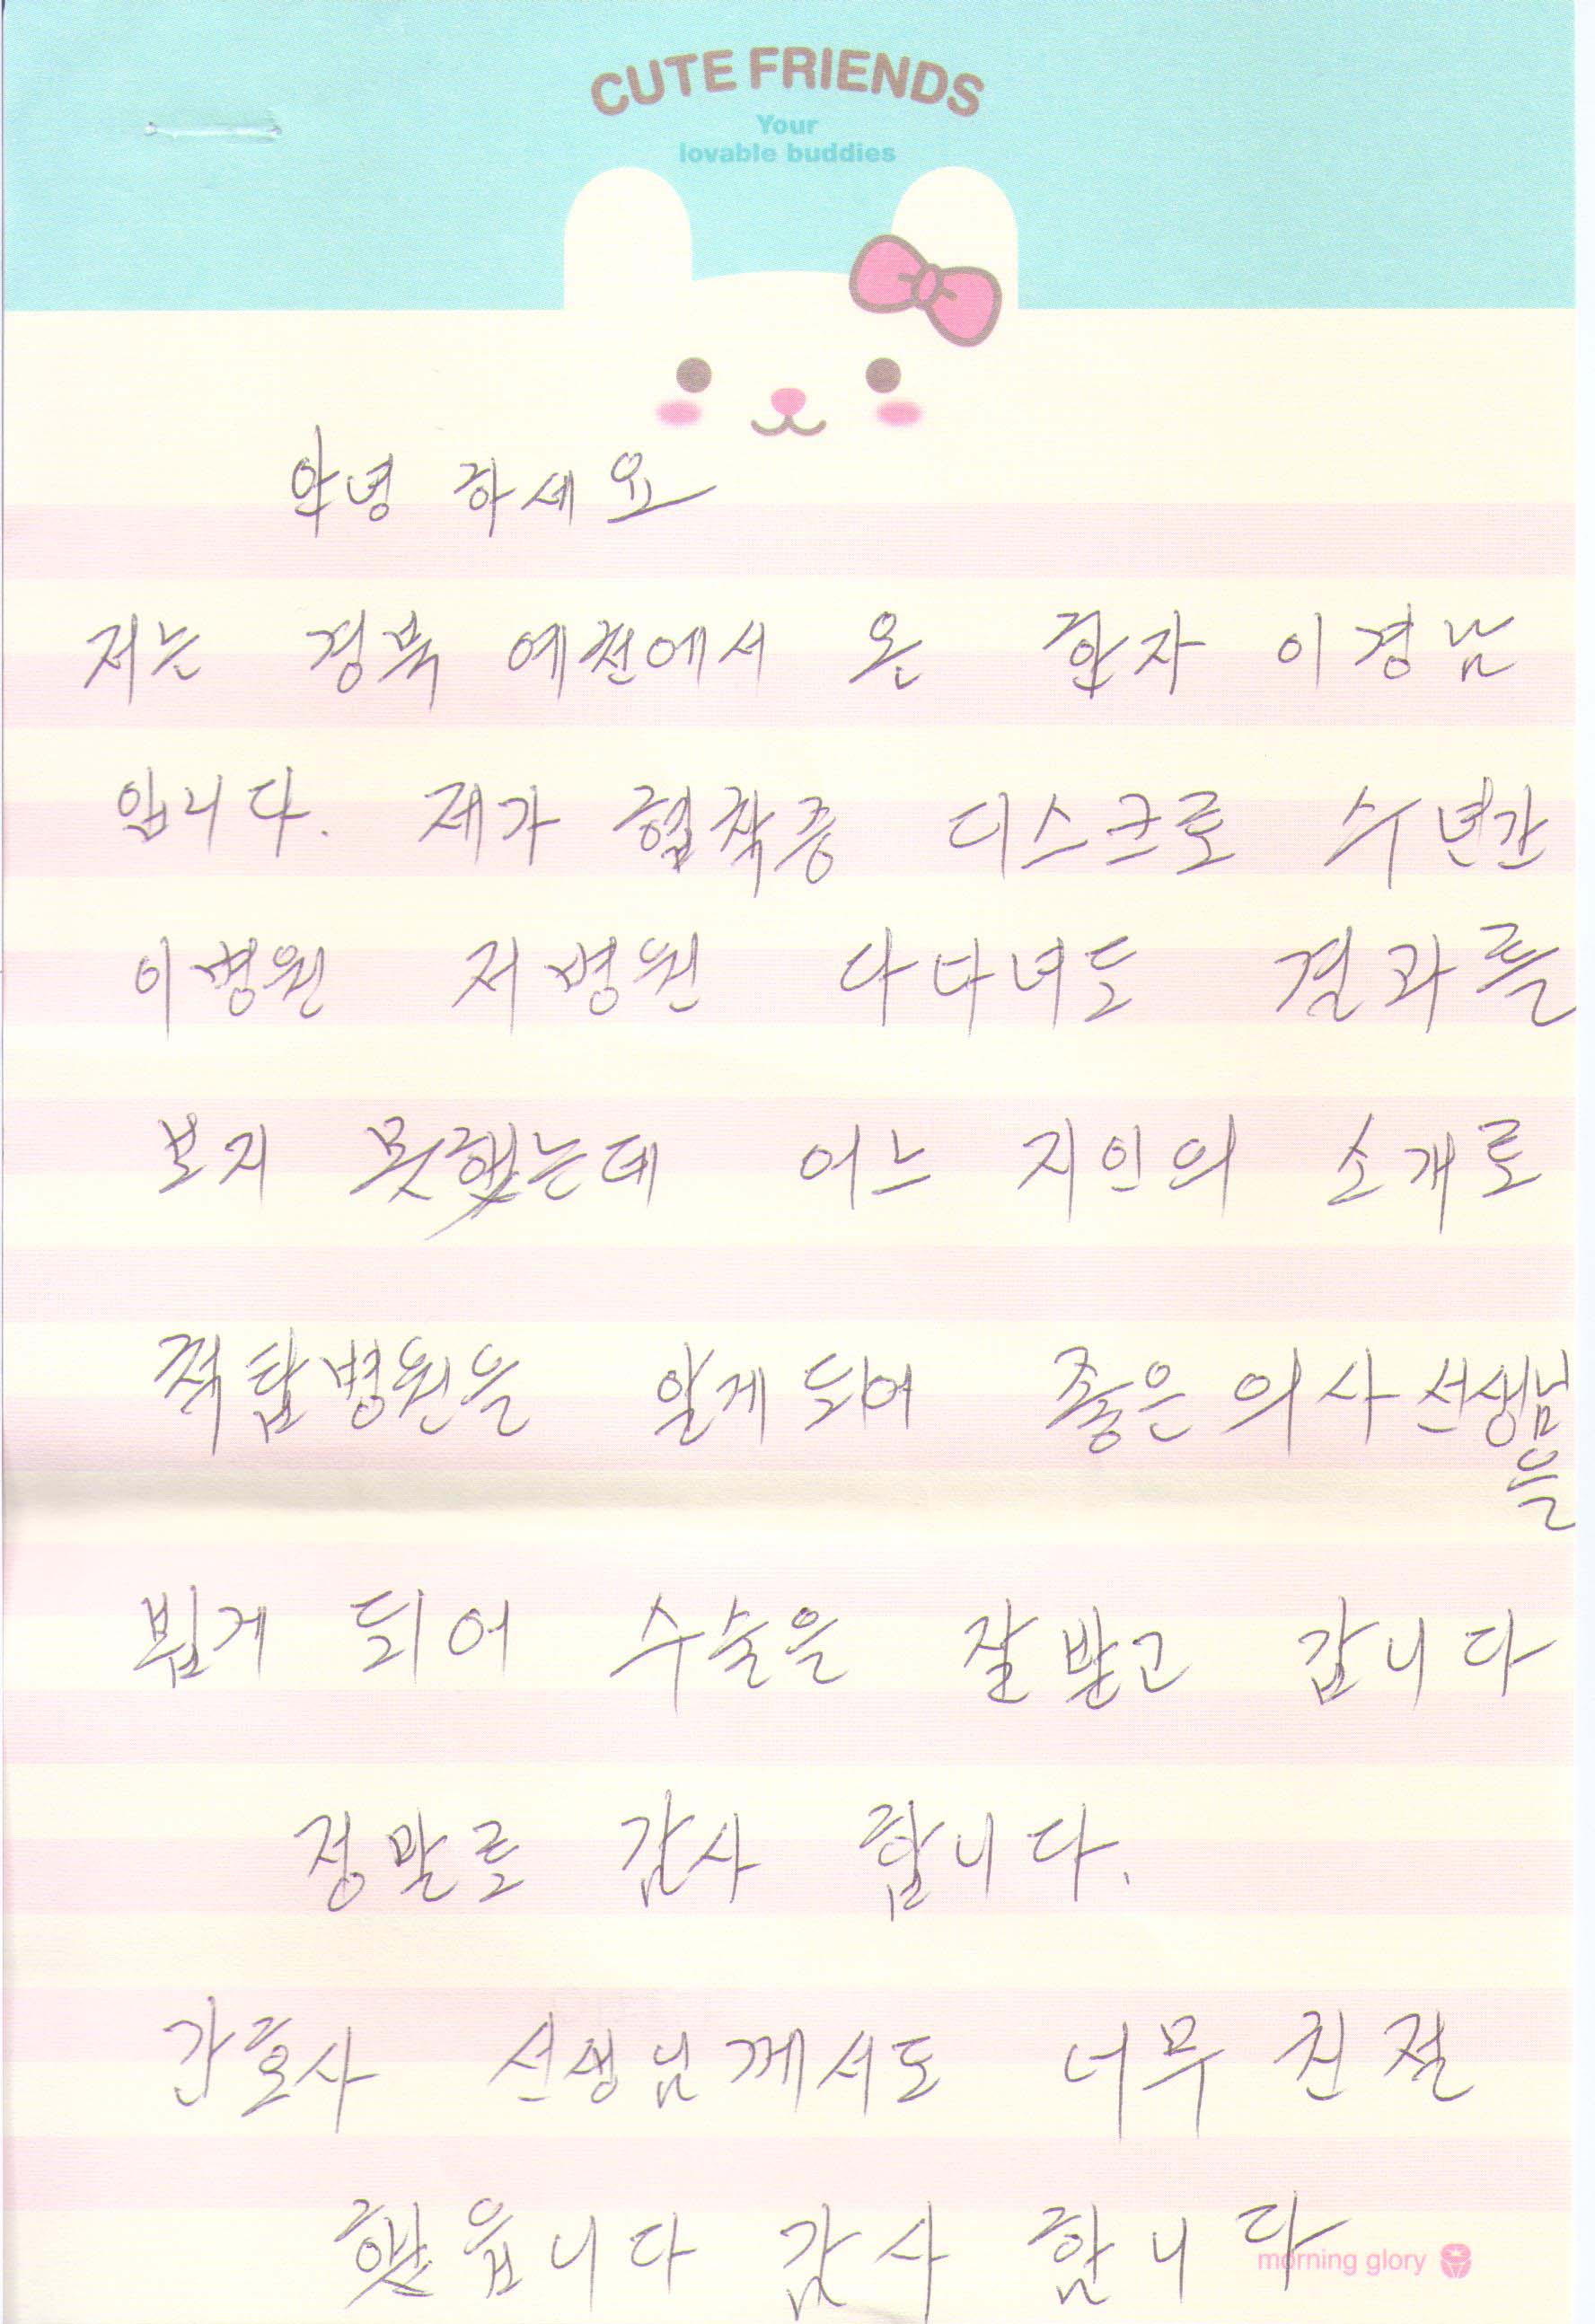 CUTE FRIENDS
Your
lovable buddies
안녕 하세요
저는 경북 예천에서 온 환자 이경남
입니다. 제가 협착증 디스크로 수년간
이병원 저병원 다다녀도 결과를
보지 못했는데 어느 지인의 소개로
척탑병원을 알게되어 좋은의사선생님
을
뵙게 되어 수술을 잘받고 갑니다
정말로 감사 합니다.
간호사 선생님께서도 너무 친절
했읍니다 감사 합니다
morning glory